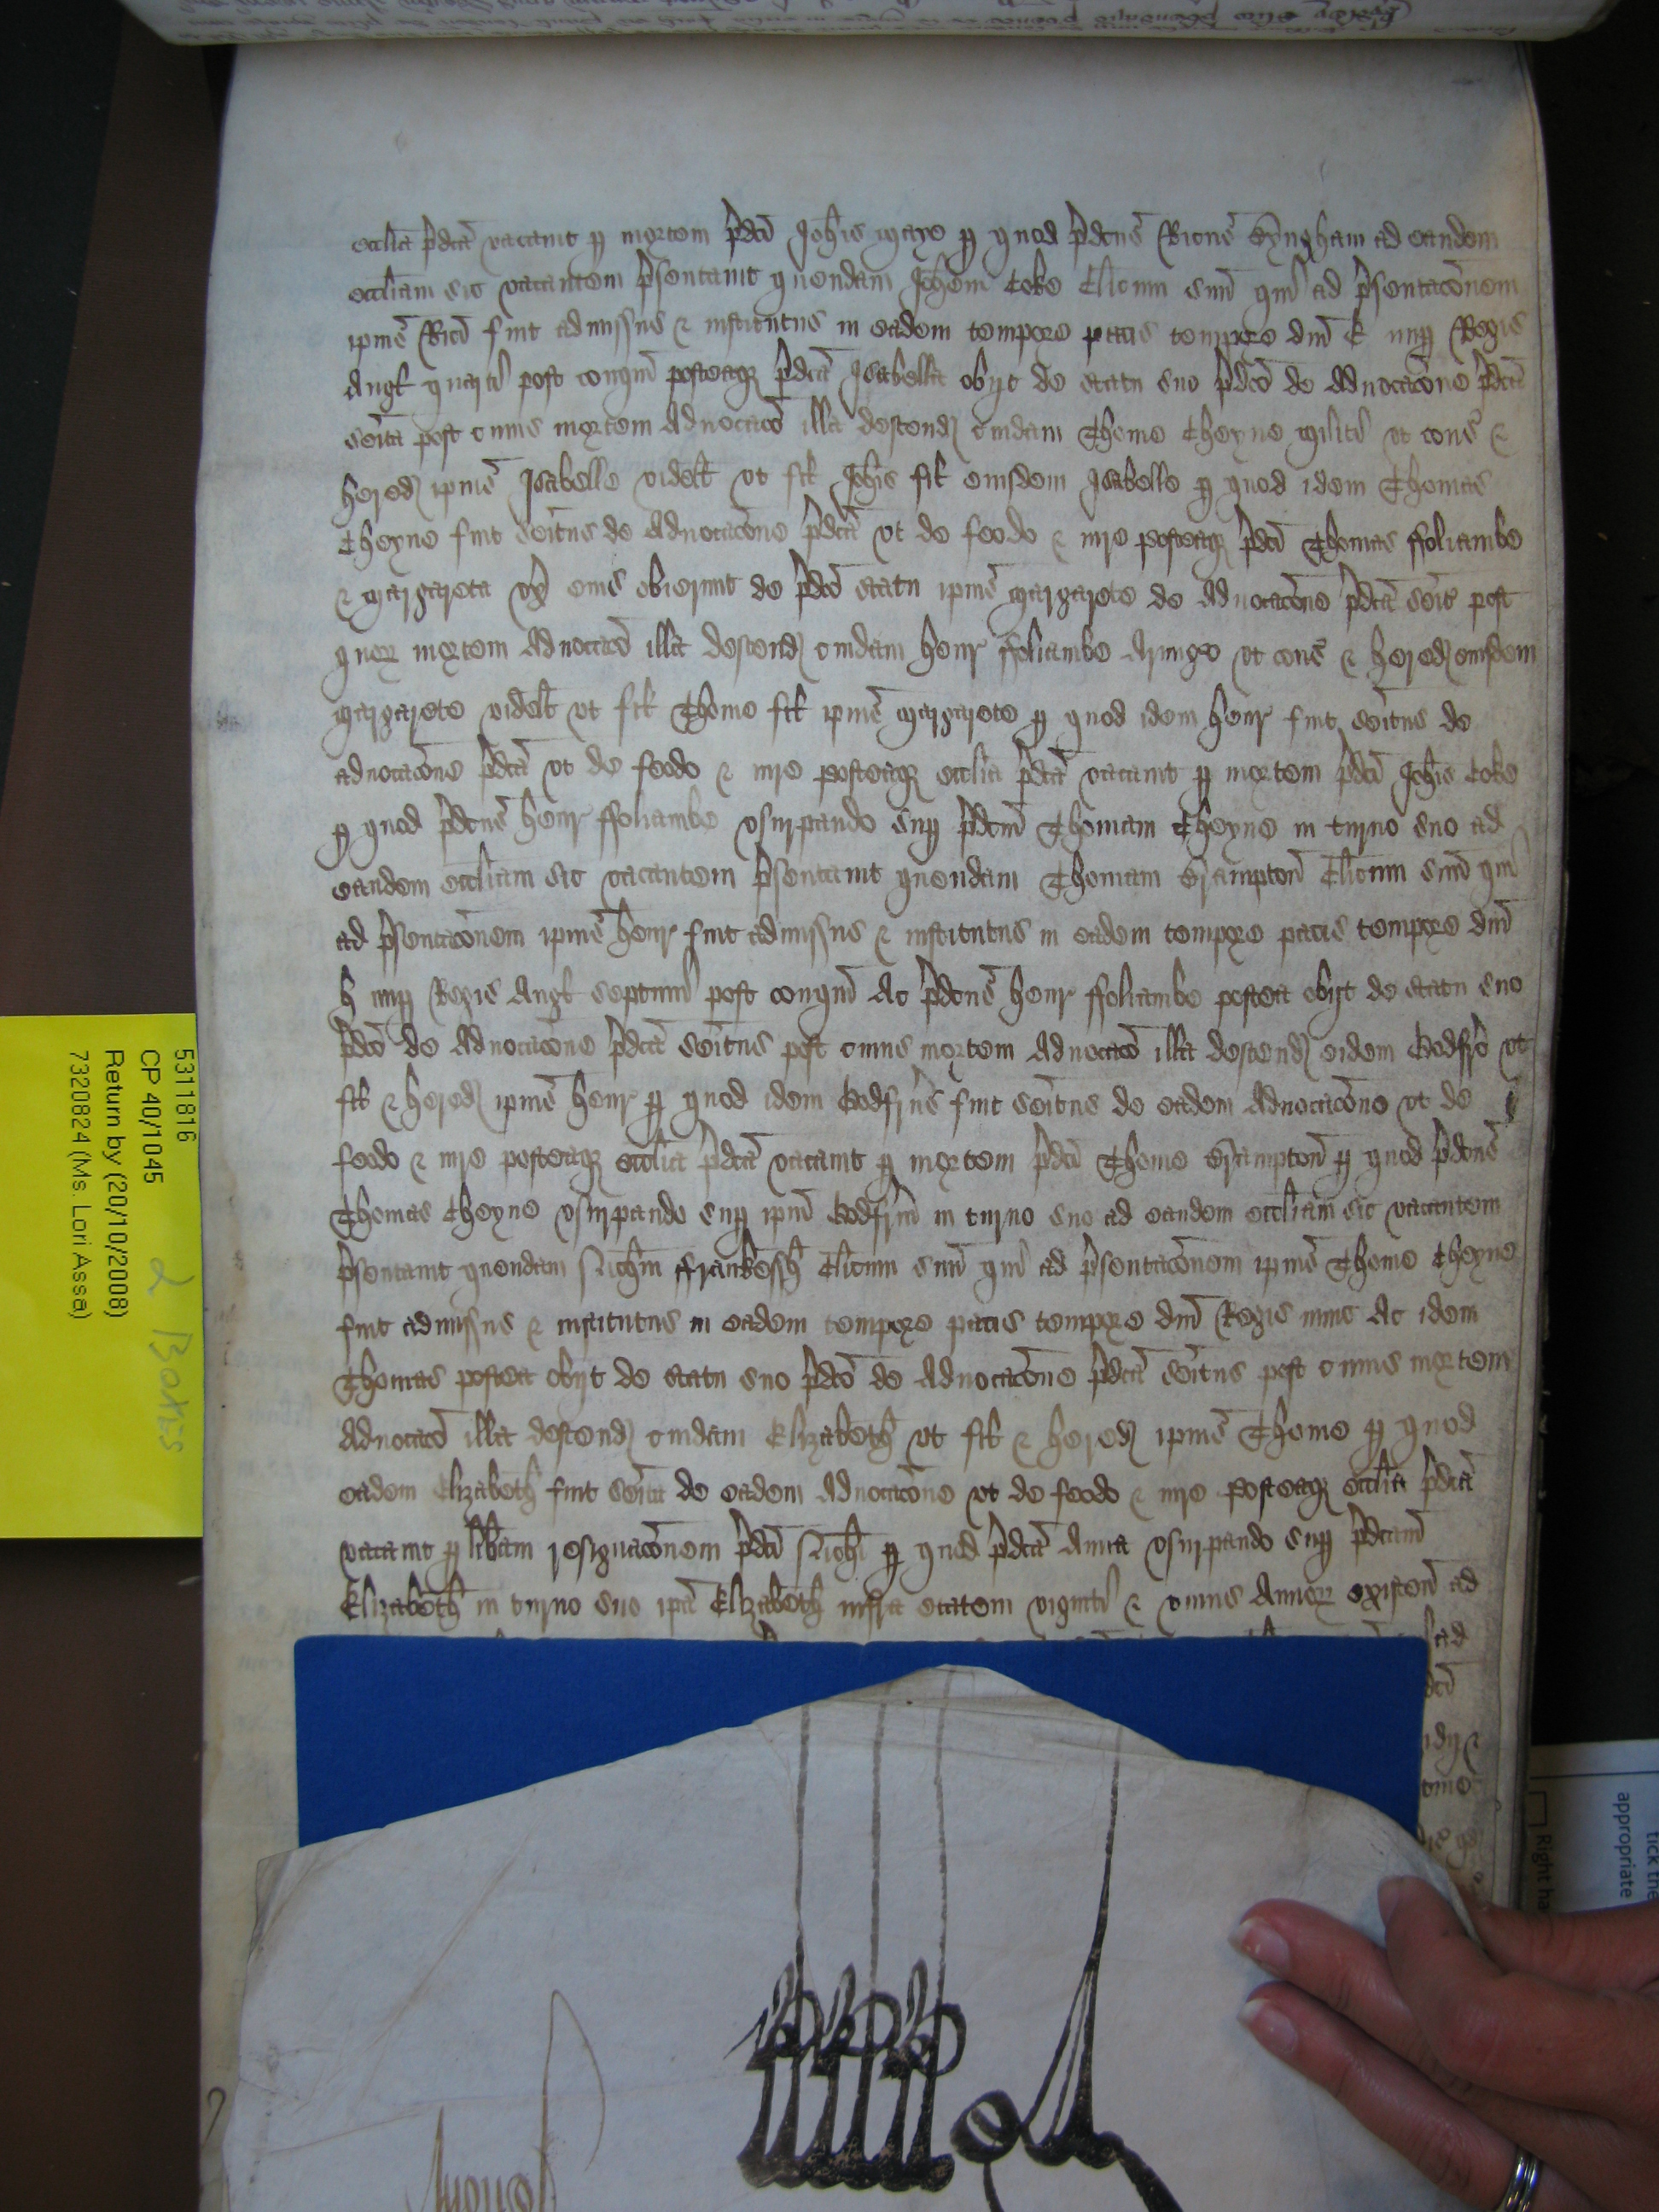 ecclia pdca vacavit p mortem pdci Johis Mayo p quod pdcus Ricus Byngham ad eandem
eccliam sic vacantem psentavit quendam Johem Coke Clicum suu qui ad psentacoem
ipius Rici fuit admissus & institutus in eadem tempore pacis tempore dni E nup Regis
Angl quarti post conqm posteaq pdca Isabella obijt de statu suo pdco de Advocacoe pdca
seita post cuius mortem Advocaco illa descend cuidam Thome Cheyne militi ut cons &
hered ipius Isabelle videlt ut fil Johis fil eiusdem Isabelle p quod idem Thomas
Cheyne fuit seitus de Advocacoe pdca ut de feodo & iure posteaq pdci Thomas ffoliambe
& Margareta ux eius obierunt de pdco statu ipius Margarete de Advocacoe pdca seit post
quor mortem Advocaco illa descend cuidam Henr ffoliambe Armigo ut cons & hered eiusdem
Margarete videlt ut fil Thome fil ipius Margarete p quod idem Henr fuit seitus de
advocacoe pdca ut de feodo & iure posteaq ecclia pdca vacavit p mortem pdci Johis Coke
p quod pdcus Henr ffoliambe usurpando sup pdcm Thomam Cheyne in turno suo ad
eandem eccliam sic vacantem psentavit quendam Thomam Brampton Clicum suu qui
ad psentacoem ipius Henr fuit admissus & institutus in eadem tempore pacis tempore dni
H nup Regis Angl septimi post conqm Ac pdcus Henr ffoliambe postea obijt de statu suo
pdco de Advocacoe pdca seitus post cuius mortem Advocaco illa descend eidem Godfro ut
fil & hered ipius Henr p quod idem Godfrus fuit seitus de eadem Advocacoe ut de
feodo & iure posteaq ecclia pdca vacavit p mortem pdci Thome Brampton p quod pdcus
Thomas Cheyne usurpando sup ipm Godfrm in turno suo ad eandem eccliam sic vacantem
psentavit quendam Nichm ffrankyssh Clicum suu qui ad psentacoem ipius Thome Cheyne
fuit admissus & institutus in eadem tempore pacis tempore dni Regis nunc Ac idem
Thomas postea obijt de statu suo pdco de Advocacoe pdca seitus post cuius mortem
Advocaco illa descend cuidam Elizabeth ut fil & hered ipius Thome p quod
eadem Elizabeth fuit seita de eadem Advocacoe ut de feodo & iure posteaq ecclia pdca
vacavit p libam resignacoem pdci Nichi p quod pdca Anna usurpando sup pdcam
Elizabeth in turno suo ipa Elizabeth infra etatem viginti & unius Annor existen ad
5311816
CP 40/1045
Return by (20/10/2008)
7320824 (Ms. Lori Assa)
2 BOXES
tick the
appropriate
Right ha